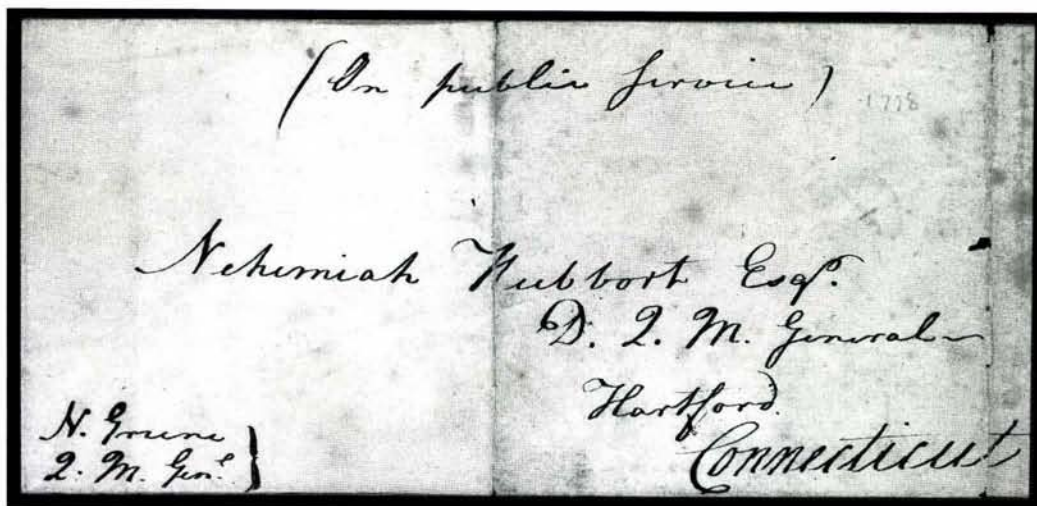 (On public Service)
1778
Nehemiah Hubbort Esqr.
D. Q. M. General
Hartford.
Connecticut
N. Greene
Q. M. Genl.